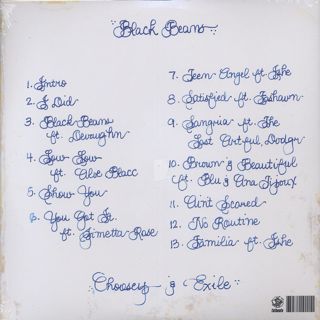 Black Beans
1. Intro
2. I Did
3. Black Beans
ft. Devoughn
4. Low Low
ft. Aloe Blacc
5. Show You
6. You Got It
ft. Jimetta Rose
7. Teen Angel ft. Ishe
8. Satisfied ft. Fashawn
9. Sangria ft. The
Lost Artful, Dodgr
10. Brown & Beautiful
ft. Blu & Ana Tijoux
11. Ain't Scared
12. No Routine
13. Familia ft. Ishe
Choosey & Exile